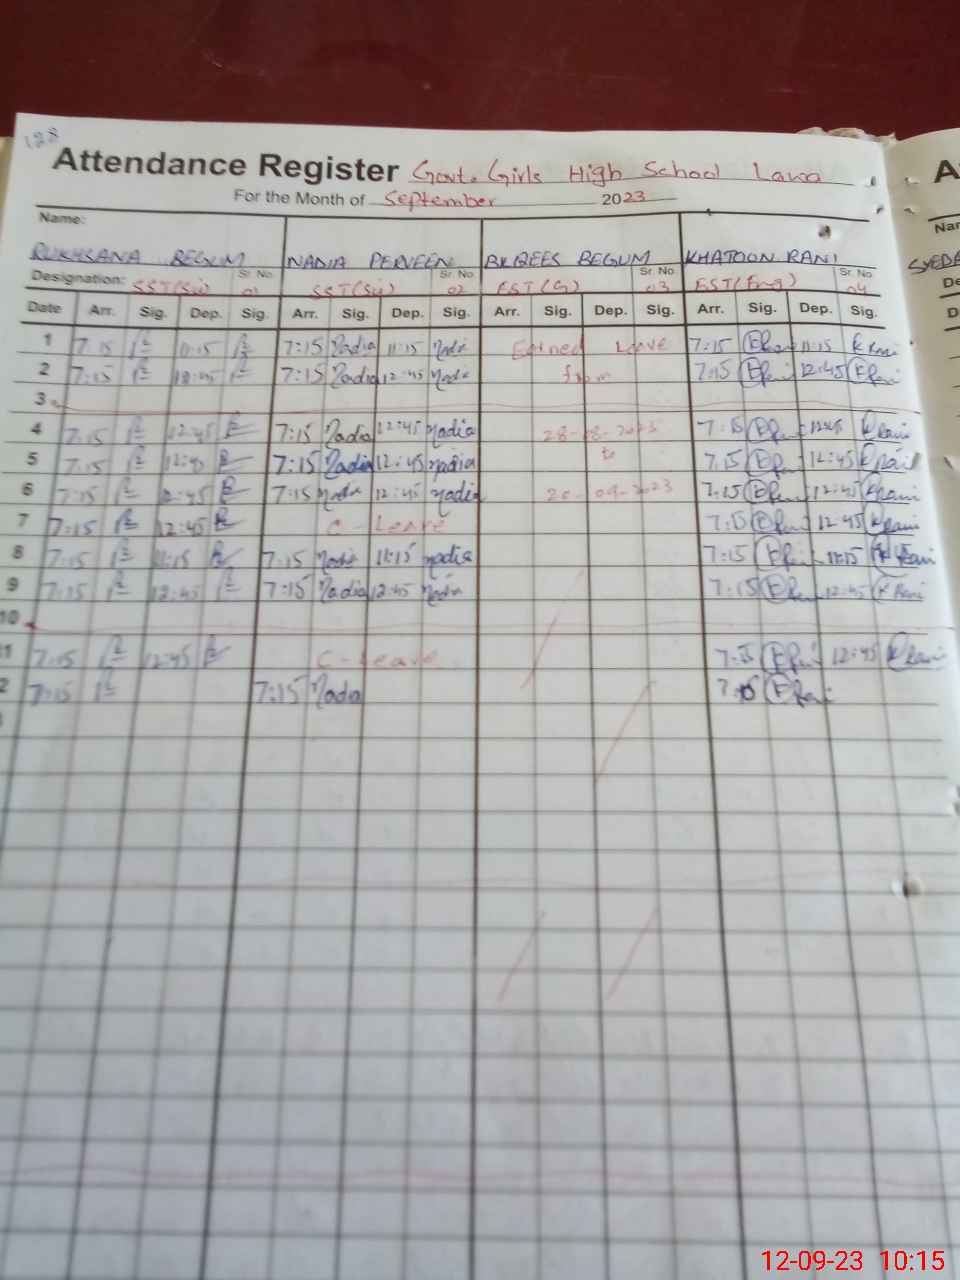 128
Attendance Register Govt. Girls High School Lawa
For the Month of September 2023
Name:
RUKHSANA BEGUM NADIA PERVEEN BILQEES BEGUM KHATOON RANI
Designation: SST(Sci) Sr. No. 01 SST(Sci) Sr. No. 02 EST(G) Sr. No. 03 EST(Eng) Sr. No. 04
Date Arr. Sig. Dep. Sig. Arr. Sig. Dep. Sig. Arr. Sig. Dep. Sig. Arr. Sig. Dep. Sig.
1 7:15 11:15 7:15 Nadia 11:15 Nadia Earned Leave 7:15 KRani 11:15 KRani
2 7:15 12:45 7:15 Nadia 12:45 Nadia from 7:15 KRani 12:45 KRani
3
4 7:15 12:45 7:15 Nadia 12:45 Nadia 28-08-2023 7:15 KRani 12:45 KRani
5 7:15 12:45 7:15 Nadia 12:45 Nadia to 7:15 KRani 12:45 KRani
6 7:15 12:45 7:15 Nadia 12:45 Nadia 20-09-2023 7:15 KRani 12:45 KRani
7 7:15 12:45 C-Leave 7:15 KRani 12:45 KRani
8 7:15 11:15 7:15 Nadia 11:15 Nadia 7:15 KRani 11:15 KRani
9 7:15 12:45 7:15 Nadia 12:45 Nadia 7:15 KRani 12:45 KRani
10
1 7:15 12:45 C-Leave 7:15 KRani 12:45 KRani
2 7:15 7:15 Nadia 7:15 KRani
A
Nar
SYEDA
De
D
12-09-23 10:15